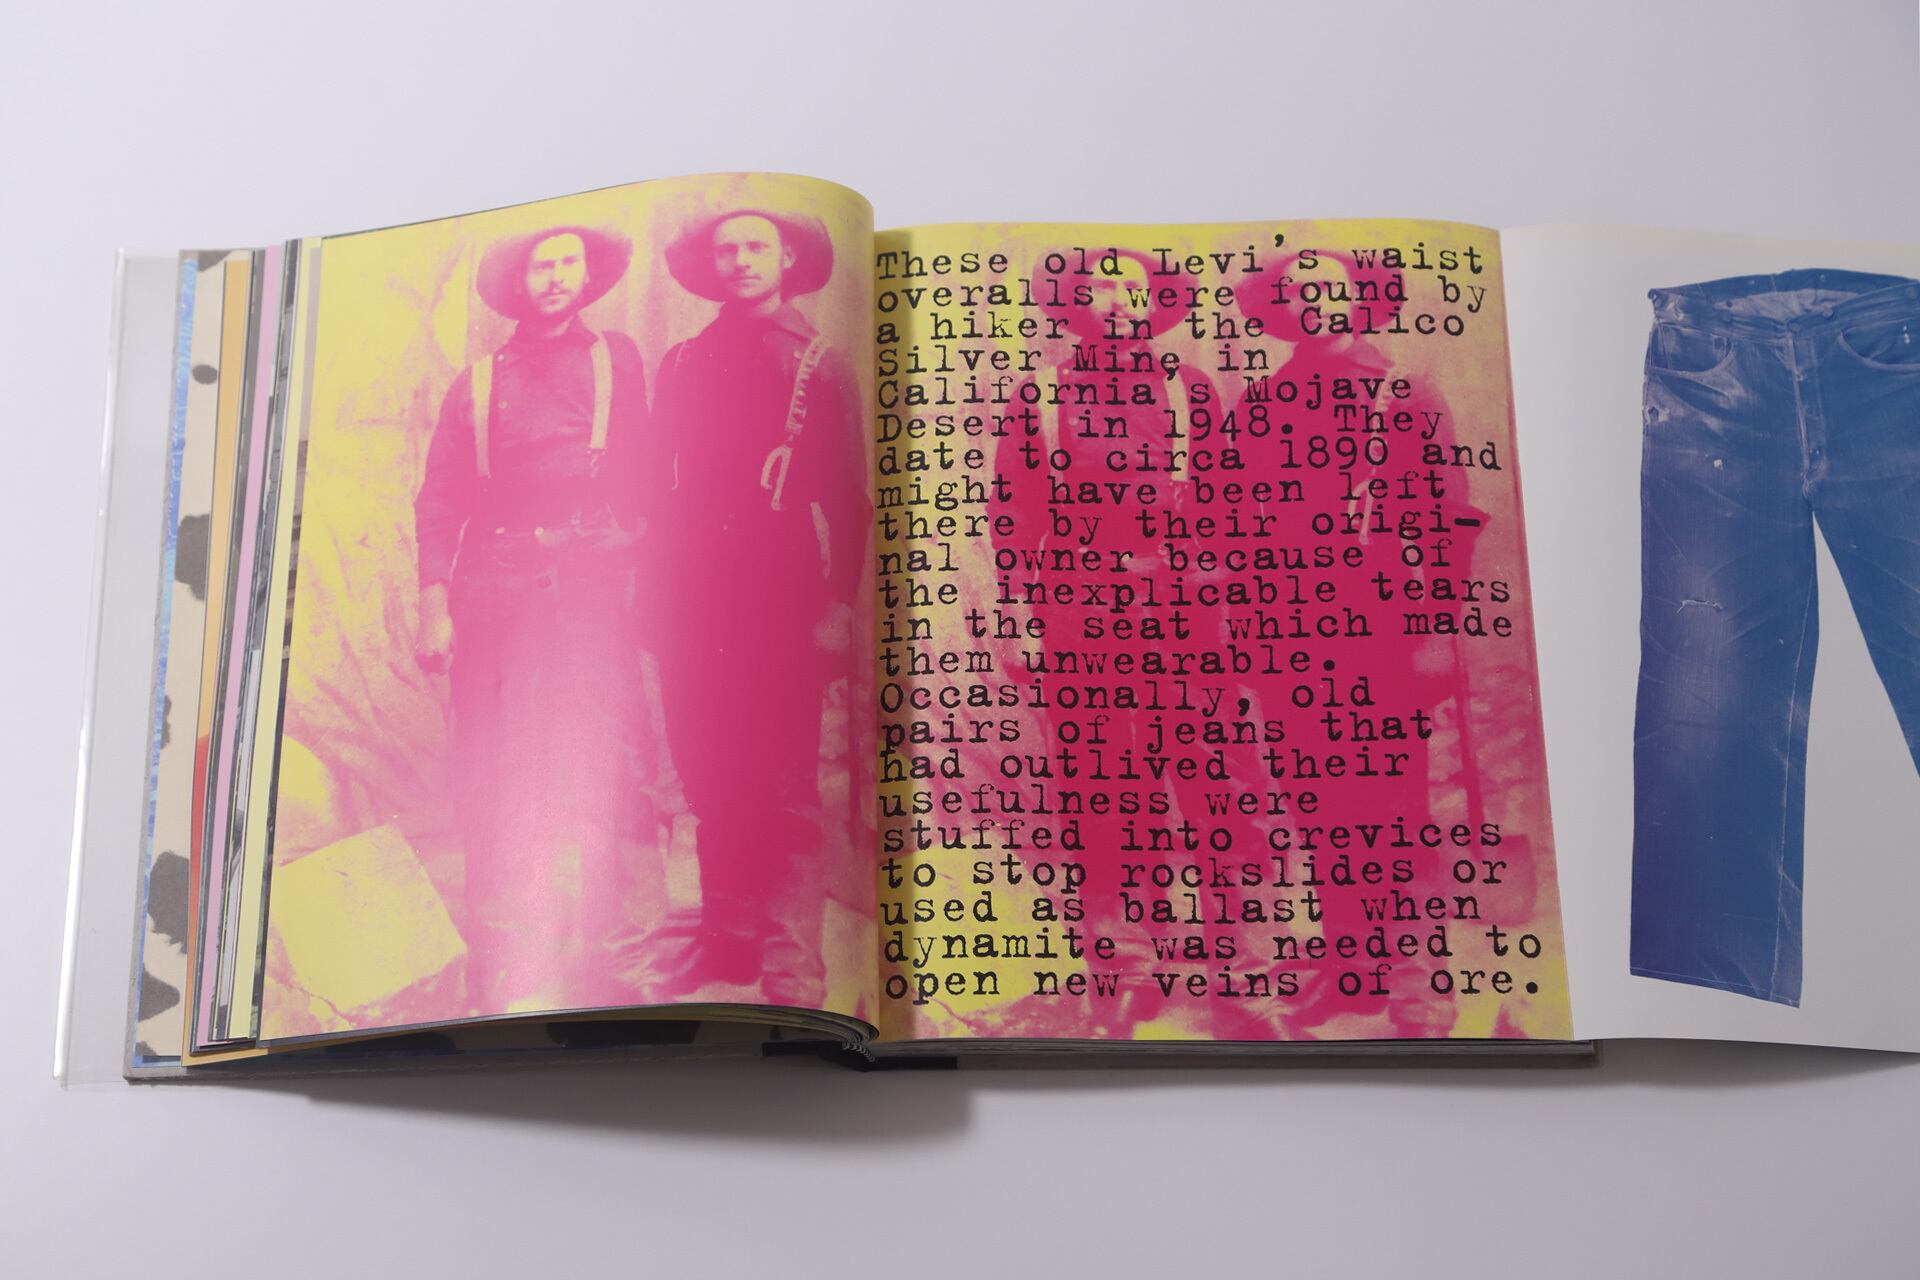 These old Levi's waist
overalls were found by
a hiker in the Calico
Silver Mine in
California's Mojave
Desert in 1948. They
date to circa 1890 and
might have been left
there by their origi-
nal owner because of
the inexplicable tears
in the seat which made
them unwearable.
Occasionally, old
pairs of jeans that
had outlived their
usefulness were
stuffed into crevices
to stop rockslides or
used as ballast when
dynamite was needed to
open new veins of ore.